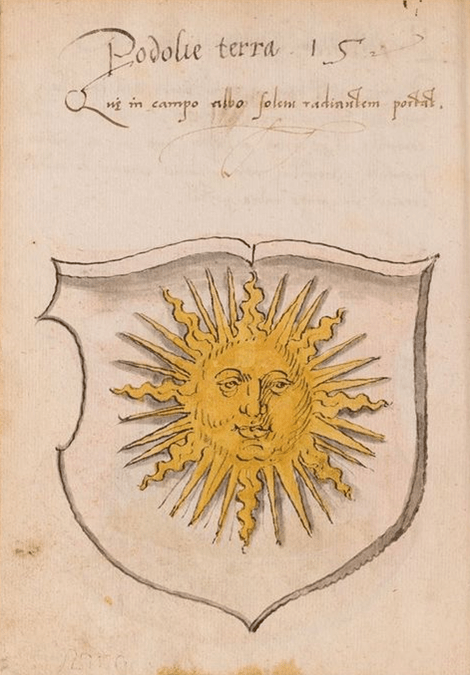 Podolie terra 15
Que in campo albo solem radiantem portat.